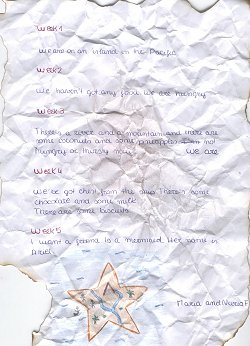 Week 1
We are on an island in the Pacific
Week 2
We haven't got any food. We are hungry
Week 3
There is a river and a mountain and there are
some coconuts and some pineapples not
hungry or thirsty now. We are
Week 4
We've got chest from the ship. There's some
chocolate and some milk
There are some biscuits
Week 5
I want a friend is a mermaid. Her name is
Ariel
Maria and Nuria F